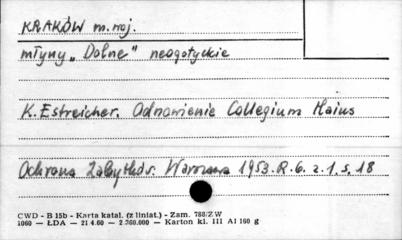 KRAKÓW m. woj.
młyny „Dolne" neogotyckie
K. Estreicher. Odnowienie Collegium Maius
Ochrona Zabytków. Warszawa 1953. R. 6. z. 1, s. 18
CWD - B 15b - Karta katal. (z liniat.) - Zam. 788/ZW
1060 — ŁDA — 21 4.60 — 2.760.000 — Karton kl. III A1 160 g